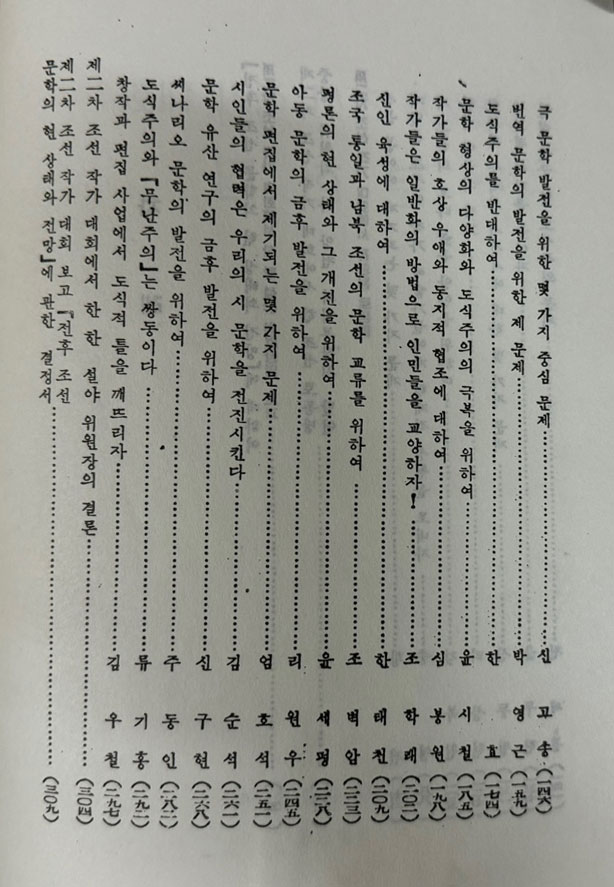 극 문학 발전을 위한 몇 가지 중심 문제……신 고 송 (一四六)
번역 문학의 발전을 위한 제 문제……박 영 근 (一五九)
도식주의를 반대하여……한 효 (一七四)
문학 형상의 다양화와 도식주의의 극복을 위하여……윤 시 철 (一八五)
작가들의 호상 우애와 동지적 협조에 대하여……심 봉 원 (一九八)
작가들은 일반화의 방법으로 인민들을 교양하자!……조 학 래 (二〇二)
신인 육성에 대하여……한 태 천 (二〇九)
조국 통일과 남북 조선의 문학 교류를 위하여……조 벽 암 (二二三)
평론의 현 상태와 그 개진을 위하여……윤 세 평
아동 문학의 금후 발전을 위하여……리 원 우 (二四五)
문학 편집에서 제기되는 몇 가지 문제……엄 호 석 (二五一)
시인들의 협력은 우리의 시 문학을 전진시킨다……김 순 석 (二六一)
문학 유산 연구의 금후 발전을 위하여……신 구 현 (二六八)
씨나리오 문학의 발전을 위하여……주 동 인 (二八二)
도식주의와 『무난주의』는 쌍동이다……류 기 홍
창작과 편집 사업에서 도식적 틀을 깨뜨리자……김 우 철 (二九七)
제二차 조선 작가 대회에서 한 한 설야 위원장의 결론……(三〇四)
제二차 조선 작가 대회 보고 『전후 조선
문학의 현 상태와 전망』에 관한 결정서……(三〇九)